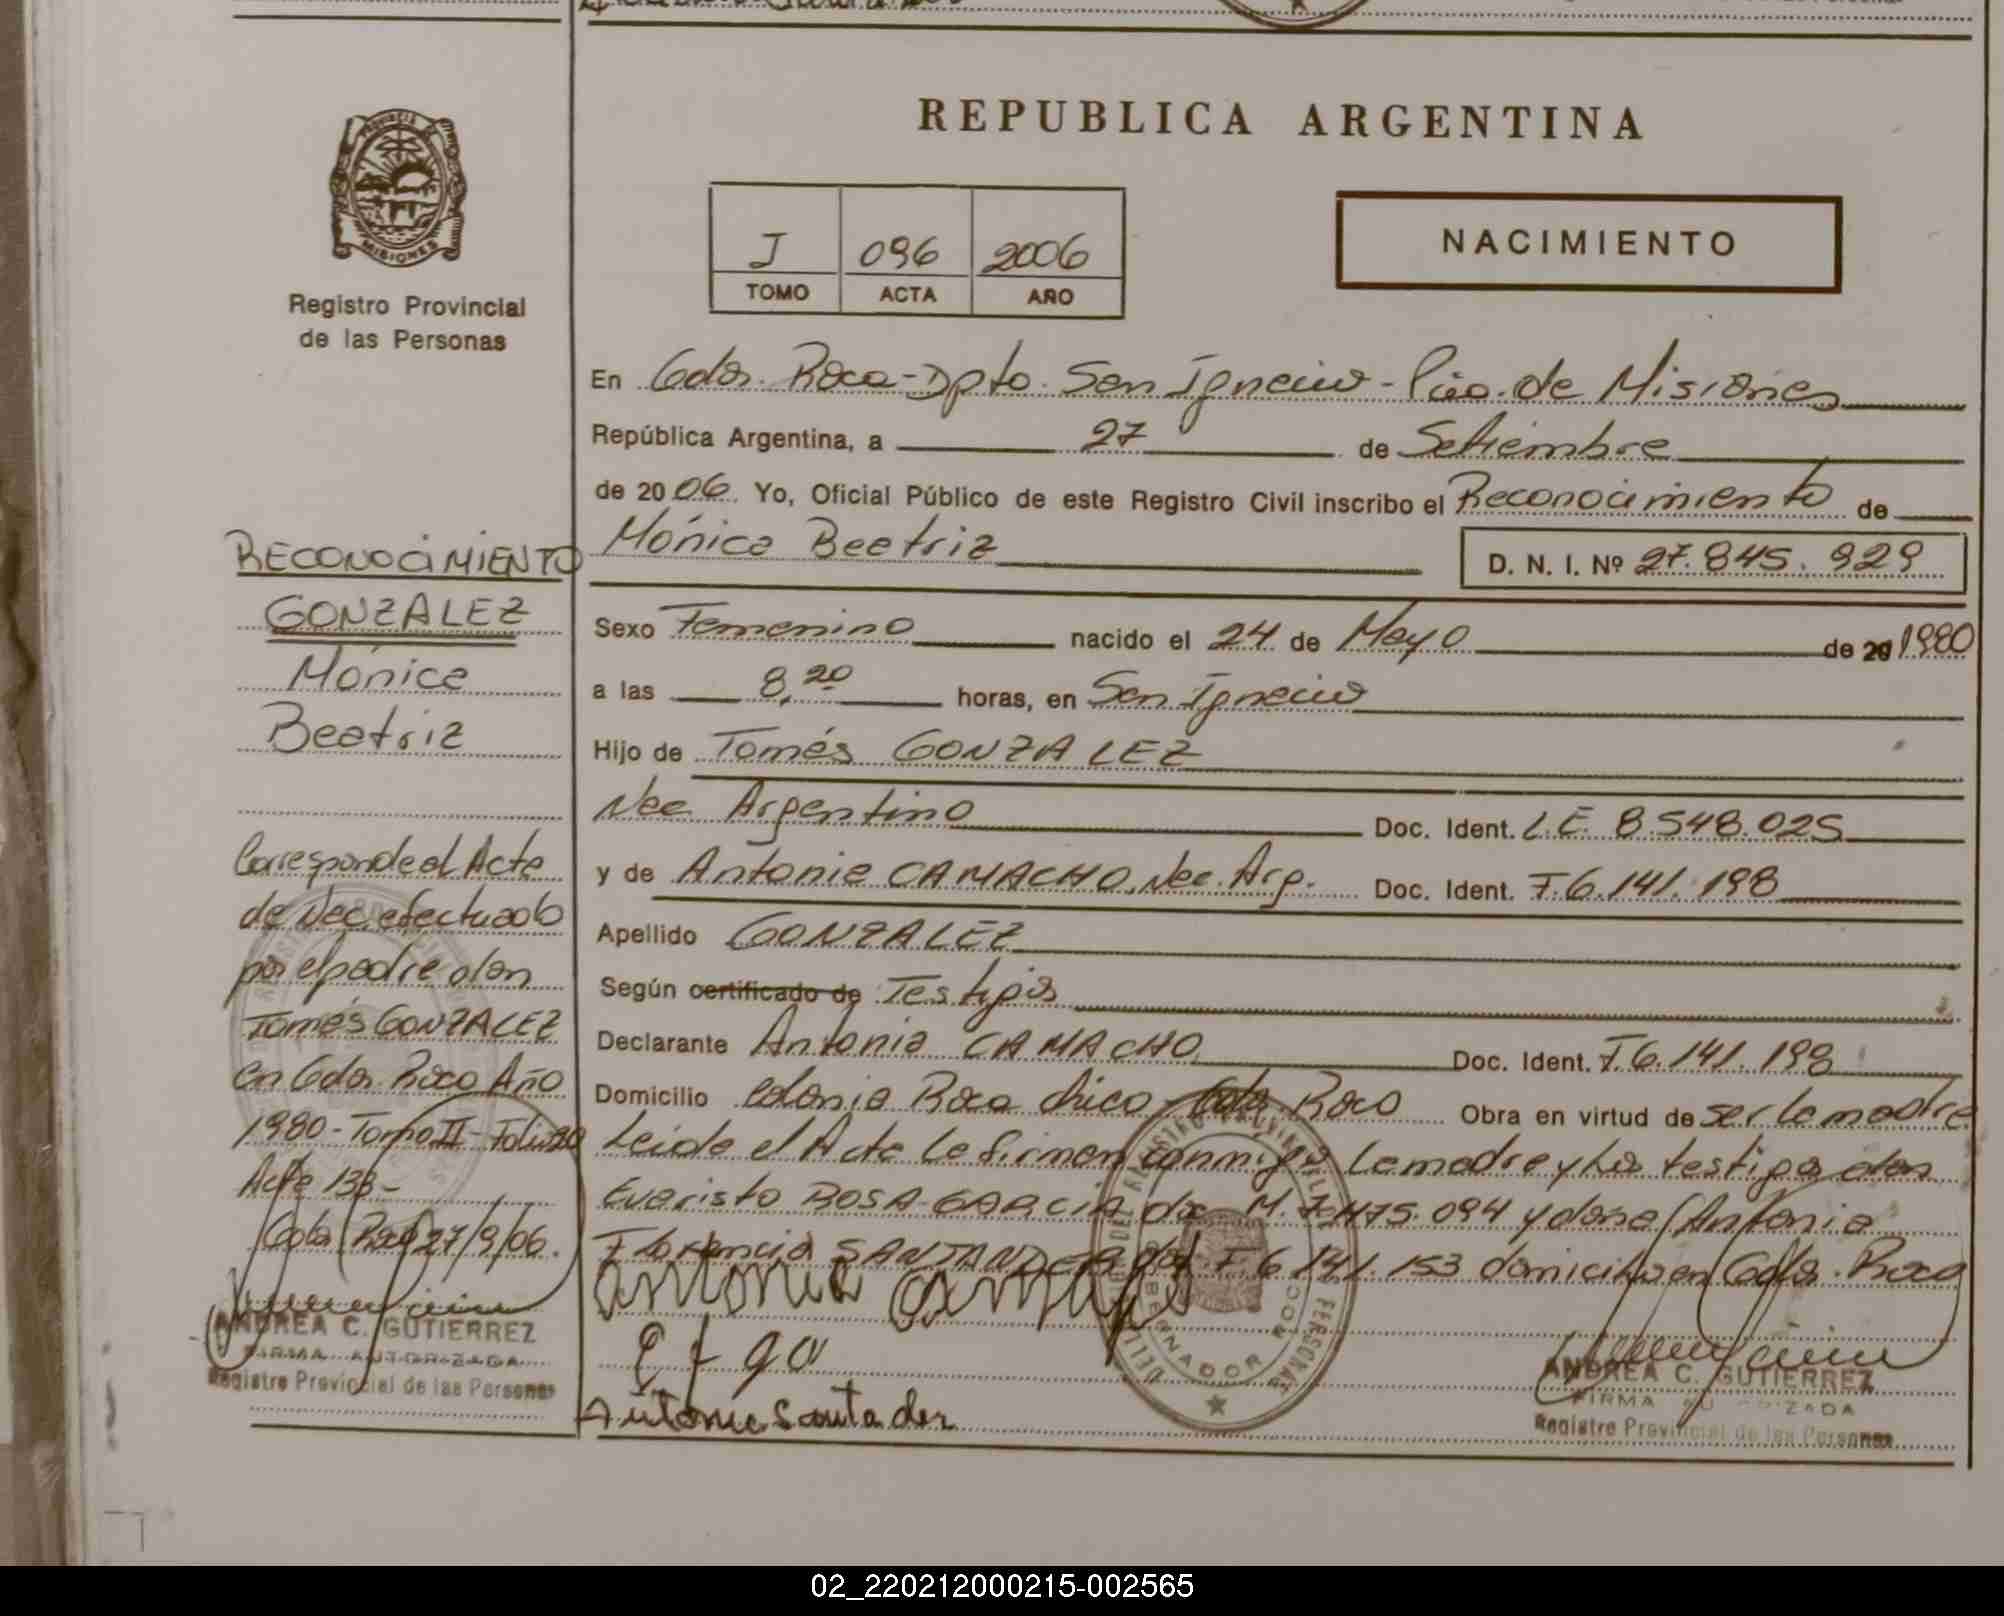 REPUBLICA ARGENTINA
PROVINCIA DE
MISIONES
Registro Provincial
de las Personas
J 096 2006
TOMO ACTA AÑO
NACIMIENTO
En Gdor. Roca - Dpto. San Ignacio - Pcia. de Misiones
República Argentina, a 27 de Setiembre
de 2006. Yo, Oficial Público de este Registro Civil inscribo el Reconocimiento de
Mónica Beatriz
D. N. I. Nº 27.845.929
Sexo Femenino nacido el 24 de Mayo de 20 1980
a las 8,20 horas, en San Ignacio
Hijo de Tomás GONZALEZ
Nac. Argentino Doc. Ident. L.E. 8.548.025
y de Antonia CAMACHO, Nac. Arg. Doc. Ident. F.6.141.198
Apellido GONZALEZ
Según certificado de Testigos
Declarante Antonia CAMACHO Doc. Ident. F.6.141.198
Domicilio Colonia Roca Chica - Gdor. Roca Obra en virtud de ser la madre
Leida el Acta la firman conmigo la madre y los testigos don
Evaristo ROSA GARCIA doc. M. 7.475.094 y doña Antonia
Florencia SANTANDER doc. F.6.141.153 domicilio en Gdor. Roca
antonia camacho
Antonia Santader
ANDREA C. GUTIERREZ
FIRMA AUTORIZADA
Registro Provincial de las Personas
RECONOCIMIENTO
GONZALEZ
Mónica
Beatriz
Corresponde al Acta
de Nac. efectuado
por el padre don
Tomás GONZALEZ
en Gdor. Roca Año
1980 - Tomo II - Folio
Acta 138 -
Gdor Roca 27/9/06.
ANDREA C. GUTIERREZ
FIRMA AUTORIZADA
Registro Provincial de las Personas
02_220212000215-002565